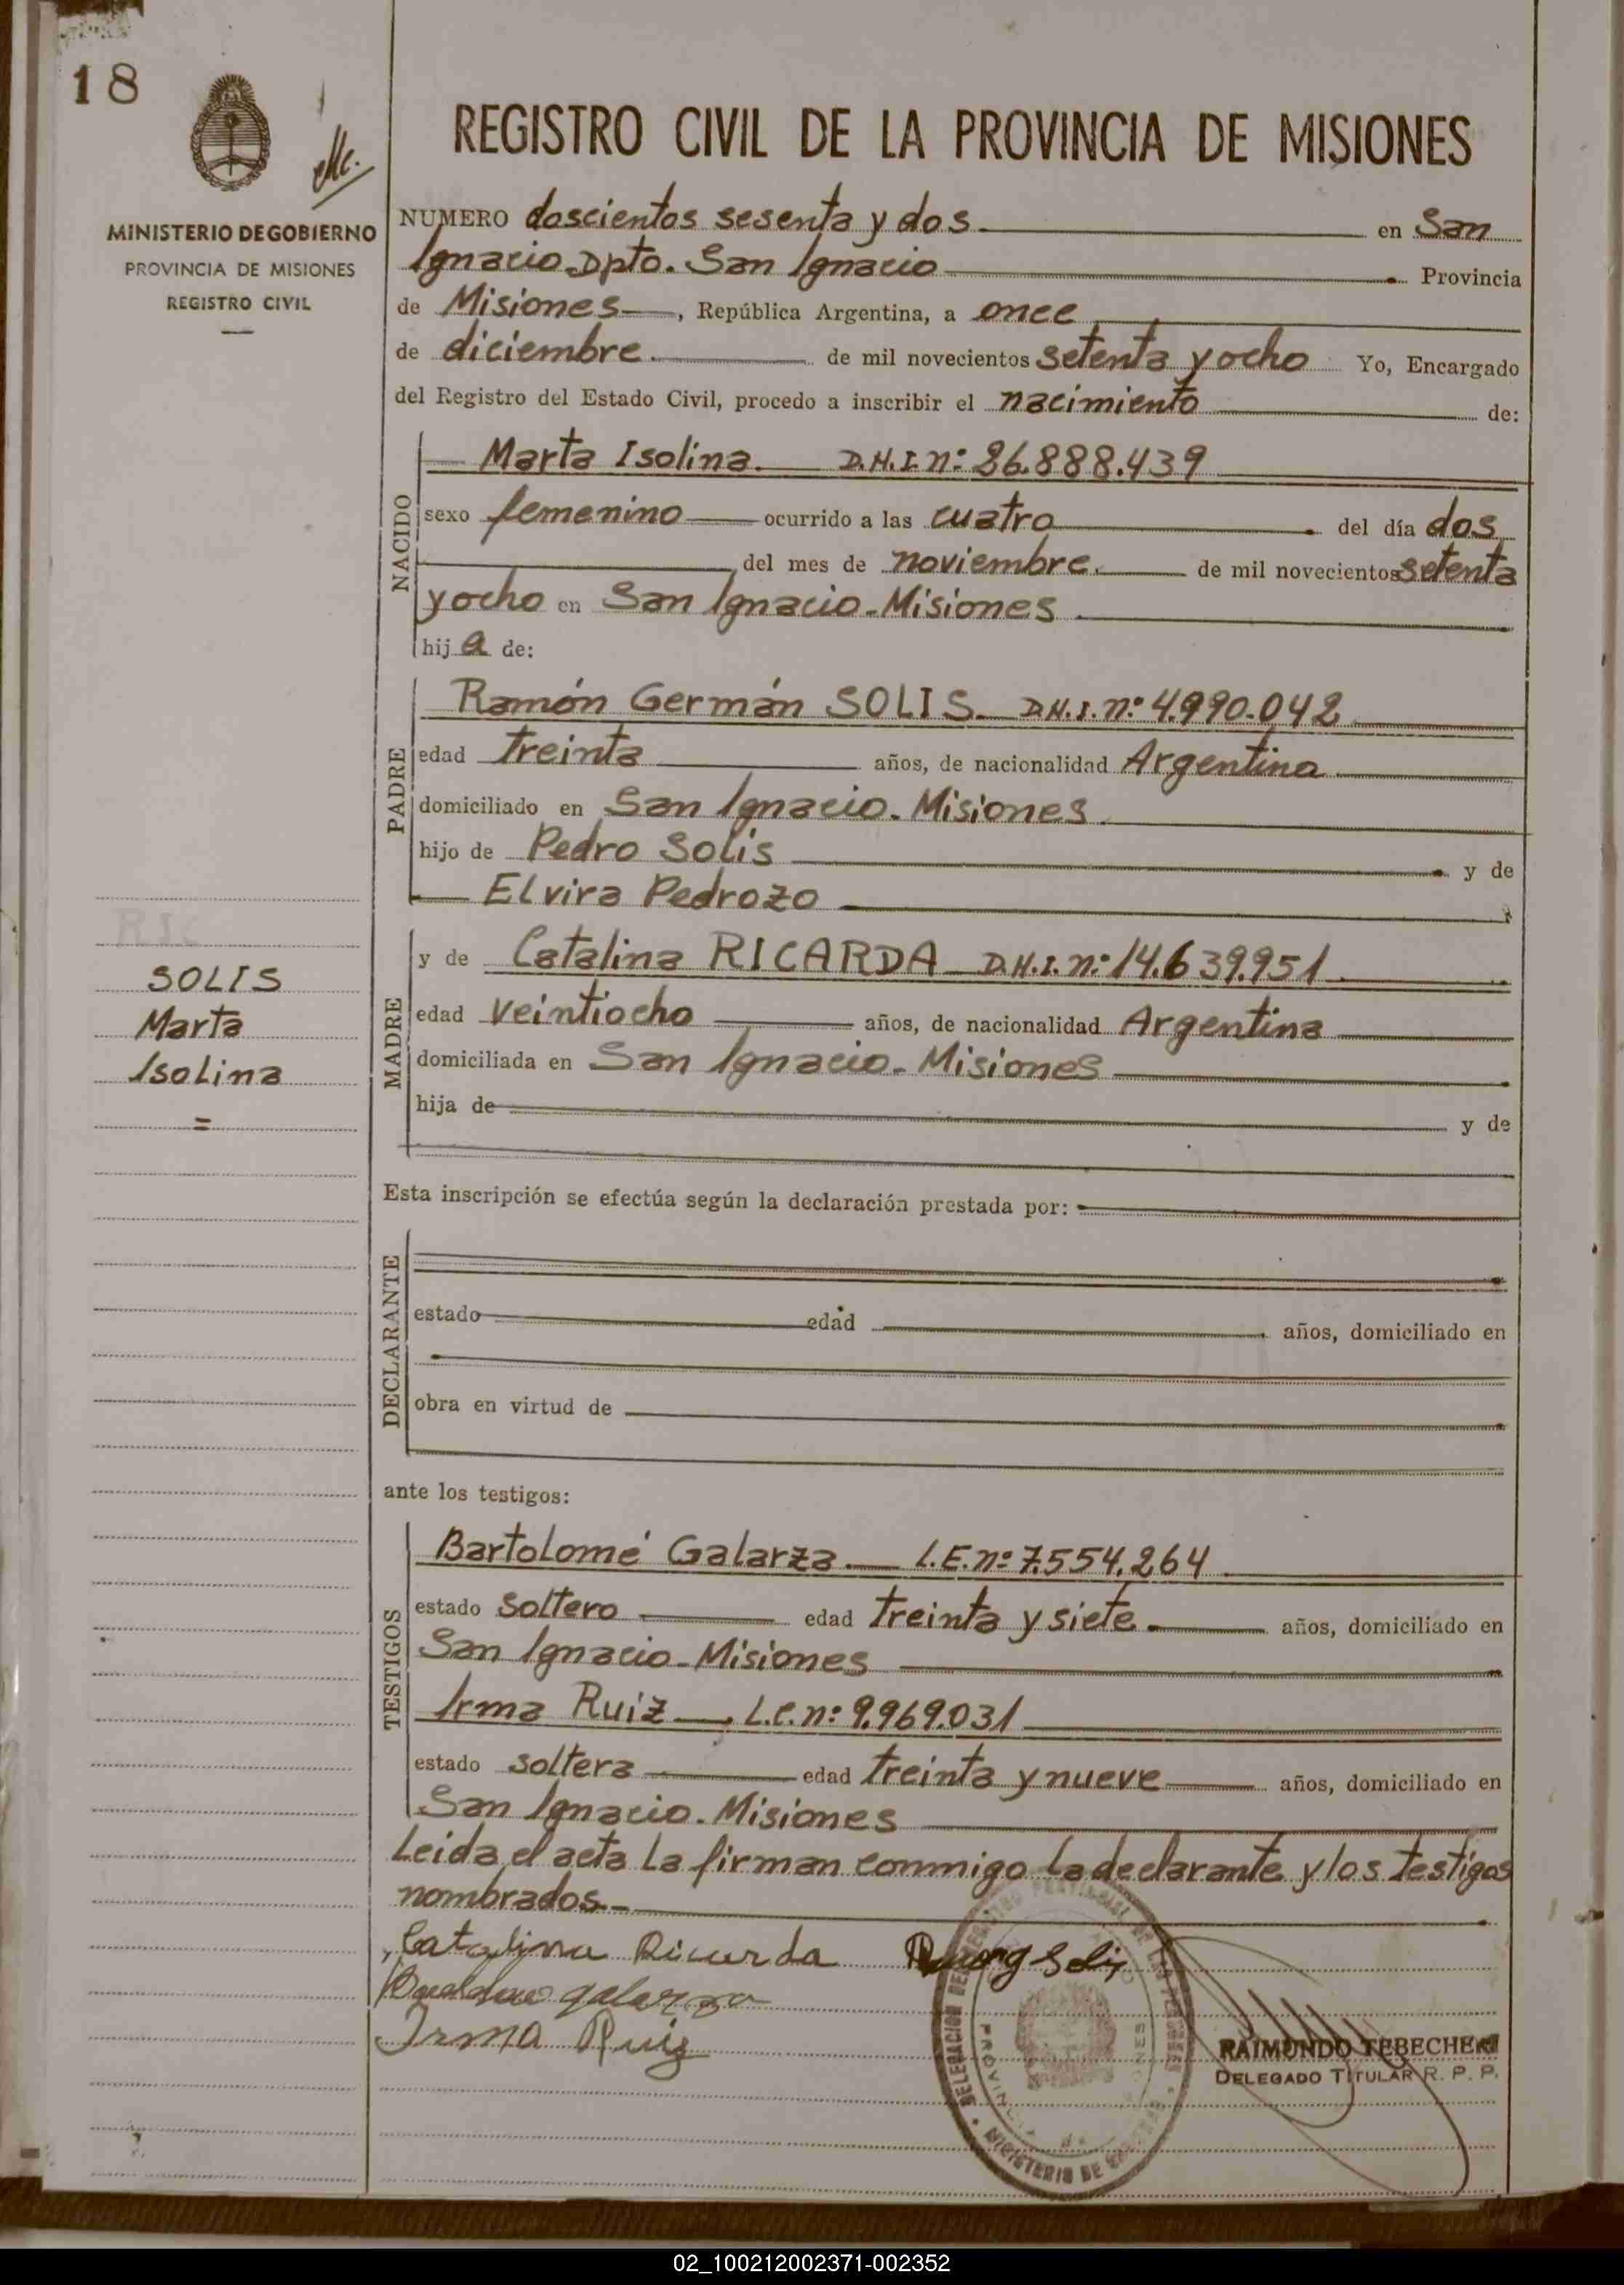 18
REGISTRO CIVIL DE LA PROVINCIA DE MISIONES
MINISTERIO DE GOBIERNO
PROVINCIA DE MISIONES
REGISTRO CIVIL
NUMERO doscientos sesenta y dos en San
Ignacio Dpto. San Ignacio Provincia
de Misiones, República Argentina, a once
de diciembre. de mil novecientos setenta y ocho Yo, Encargado
del Registro del Estado Civil, procedo a inscribir el nacimiento de:
NACIDO
Marta Isolina. D.N.I. nº 26.888.439
sexo femenino ocurrido a las cuatro del día dos
del mes de noviembre. de mil novecientos setenta
y ocho en San Ignacio - Misiones
hij a de:
PADRE
Ramón Germán SOLIS. D.N.I. nº 4.990.042
edad treinta años, de nacionalidad Argentina
domiciliado en San Ignacio. Misiones.
hijo de Pedro Solis y de
Elvira Pedrozo
MADRE
y de Catalina RICARDA D.N.I. nº 14.639.951
edad veintiocho años, de nacionalidad Argentina
domiciliada en San Ignacio. Misiones
hija de y de
SOLIS
Marta
Isolina
=
Esta inscripción se efectúa según la declaración prestada por:
DECLARANTE
estado edad años, domiciliado en
obra en virtud de
ante los testigos:
TESTIGOS
Bartolomé Galarza. L.E. nº 7.554.264
estado soltero edad treinta y siete. años, domiciliado en
San Ignacio - Misiones
Irma Ruiz L.C. nº 9.969.031
estado soltera edad treinta y nueve años, domiciliado en
San Ignacio. Misiones
Leida el acta la firman conmigo la declarante y los testigos
nombrados.-
Catalina Ricarda
galarza
Irma Ruiz
RAIMUNDO TEBECHERI
DELEGADO TITULAR R. P. P.
02_100212002371-002352